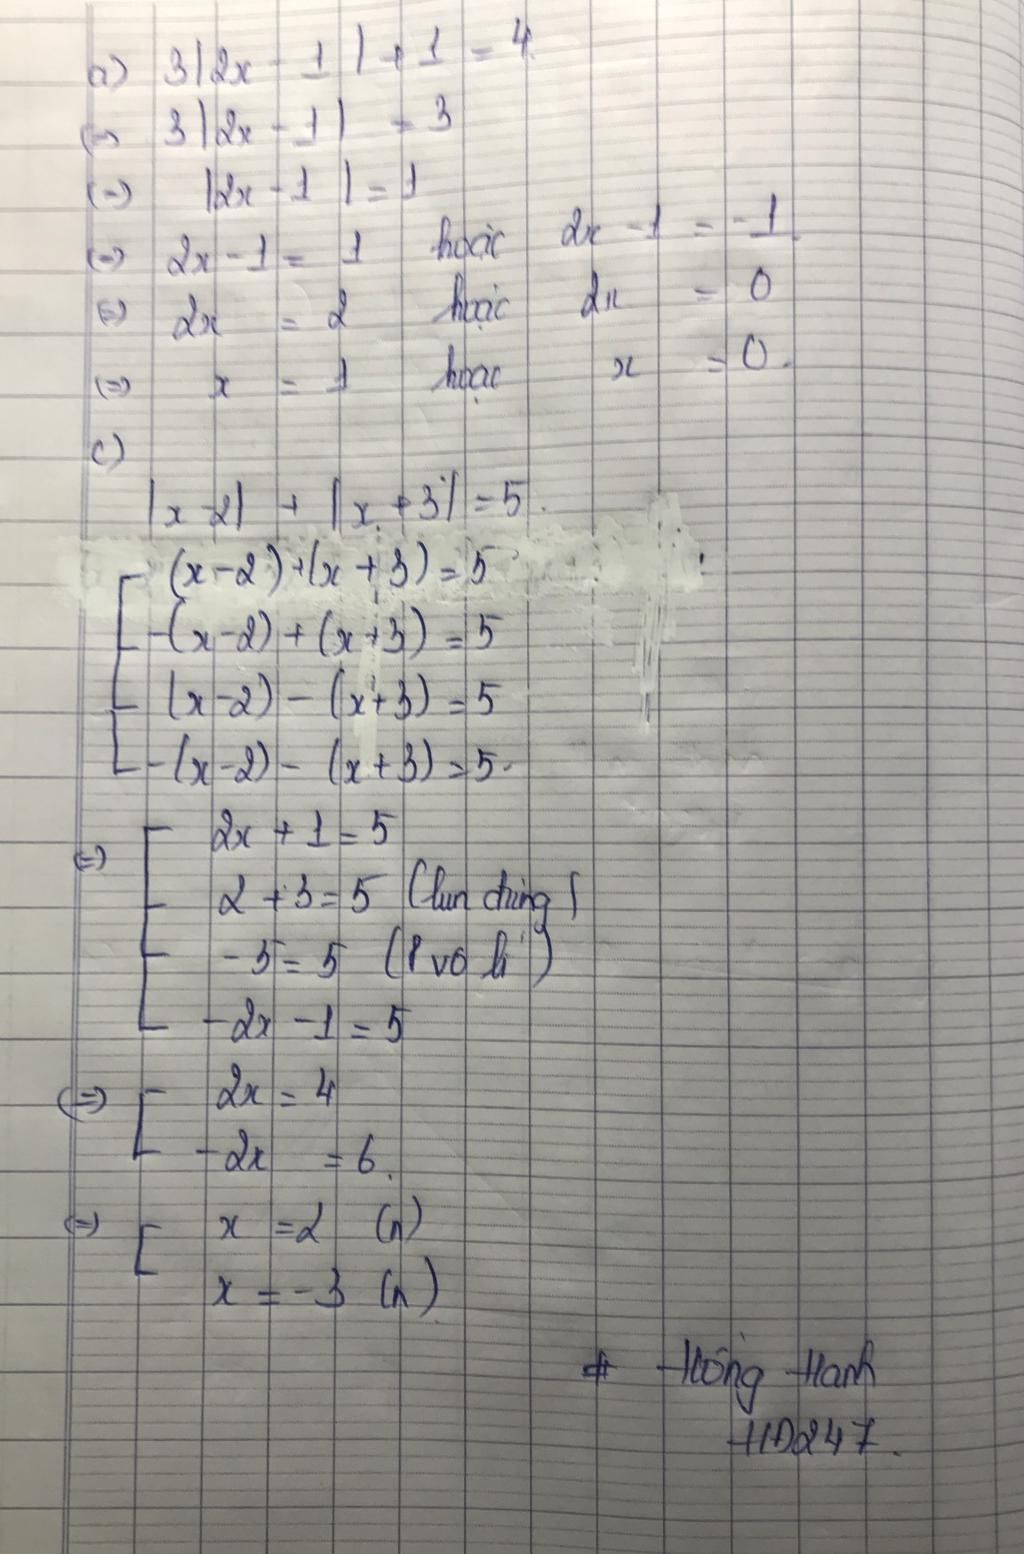 a) 3|2x - 1| + 1 = 4
(=) 3|2x - 1| = 3
(=) |2x - 1| = 1
(=) 2x - 1 = 1 hoặc 2x - 1 = -1.
(=) 2x = 2 hoặc 2x = 0
(=) x = 1 hoặc x = 0.
c)
|x - 2| + |x + 3| = 5.
(x - 2) + (x + 3) = 5
-(x - 2) + (x + 3) = 5
(x - 2) - (x + 3) = 5
-(x - 2) - (x + 3) = 5.
(=) 2x + 1 = 5
2 + 3 = 5 (lun đúng)
-5 = 5 (vô lí)
-2x - 1 = 5
(=) 2x = 4
-2x = 6.
(=) x = 2 (n)
x = -3 (n)
# Hồng Hạnh
HD247.